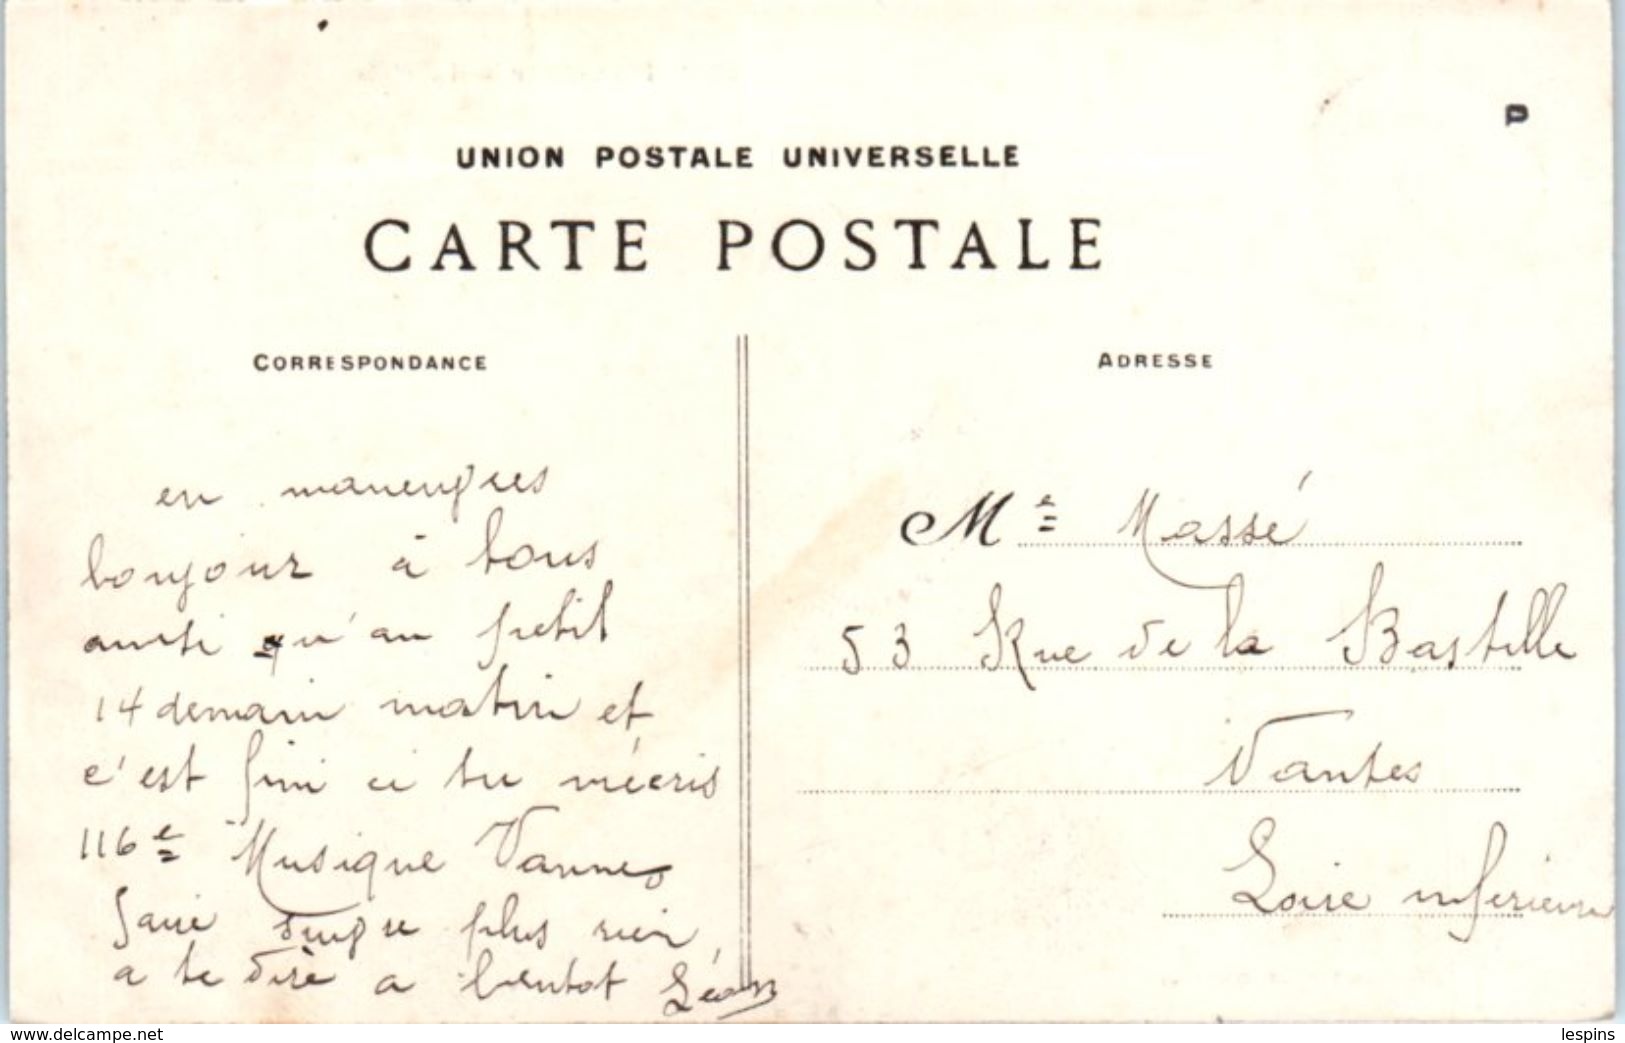 UNION POSTALE UNIVERSELLE
CARTE POSTALE
CORRESPONDANCE
ADRESSE
en
bonjour à tous
ausi qu'au petit
14 demain matin et
c'est fini ci tu mécris
116e Musique Vannes
plus rien
a te dire a bientot Léon
Me Massé
53 Rue de la Bastille
Nantes
Loire inferieure
www.delcampe.net
lespins